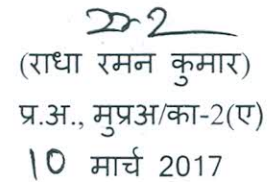 (राधा रमन कुमार)
प्र.अ., मुप्रअ/का-2(ए)
10 मार्च 2017